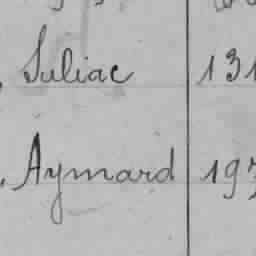 , Suliac 131
, Aymard 197